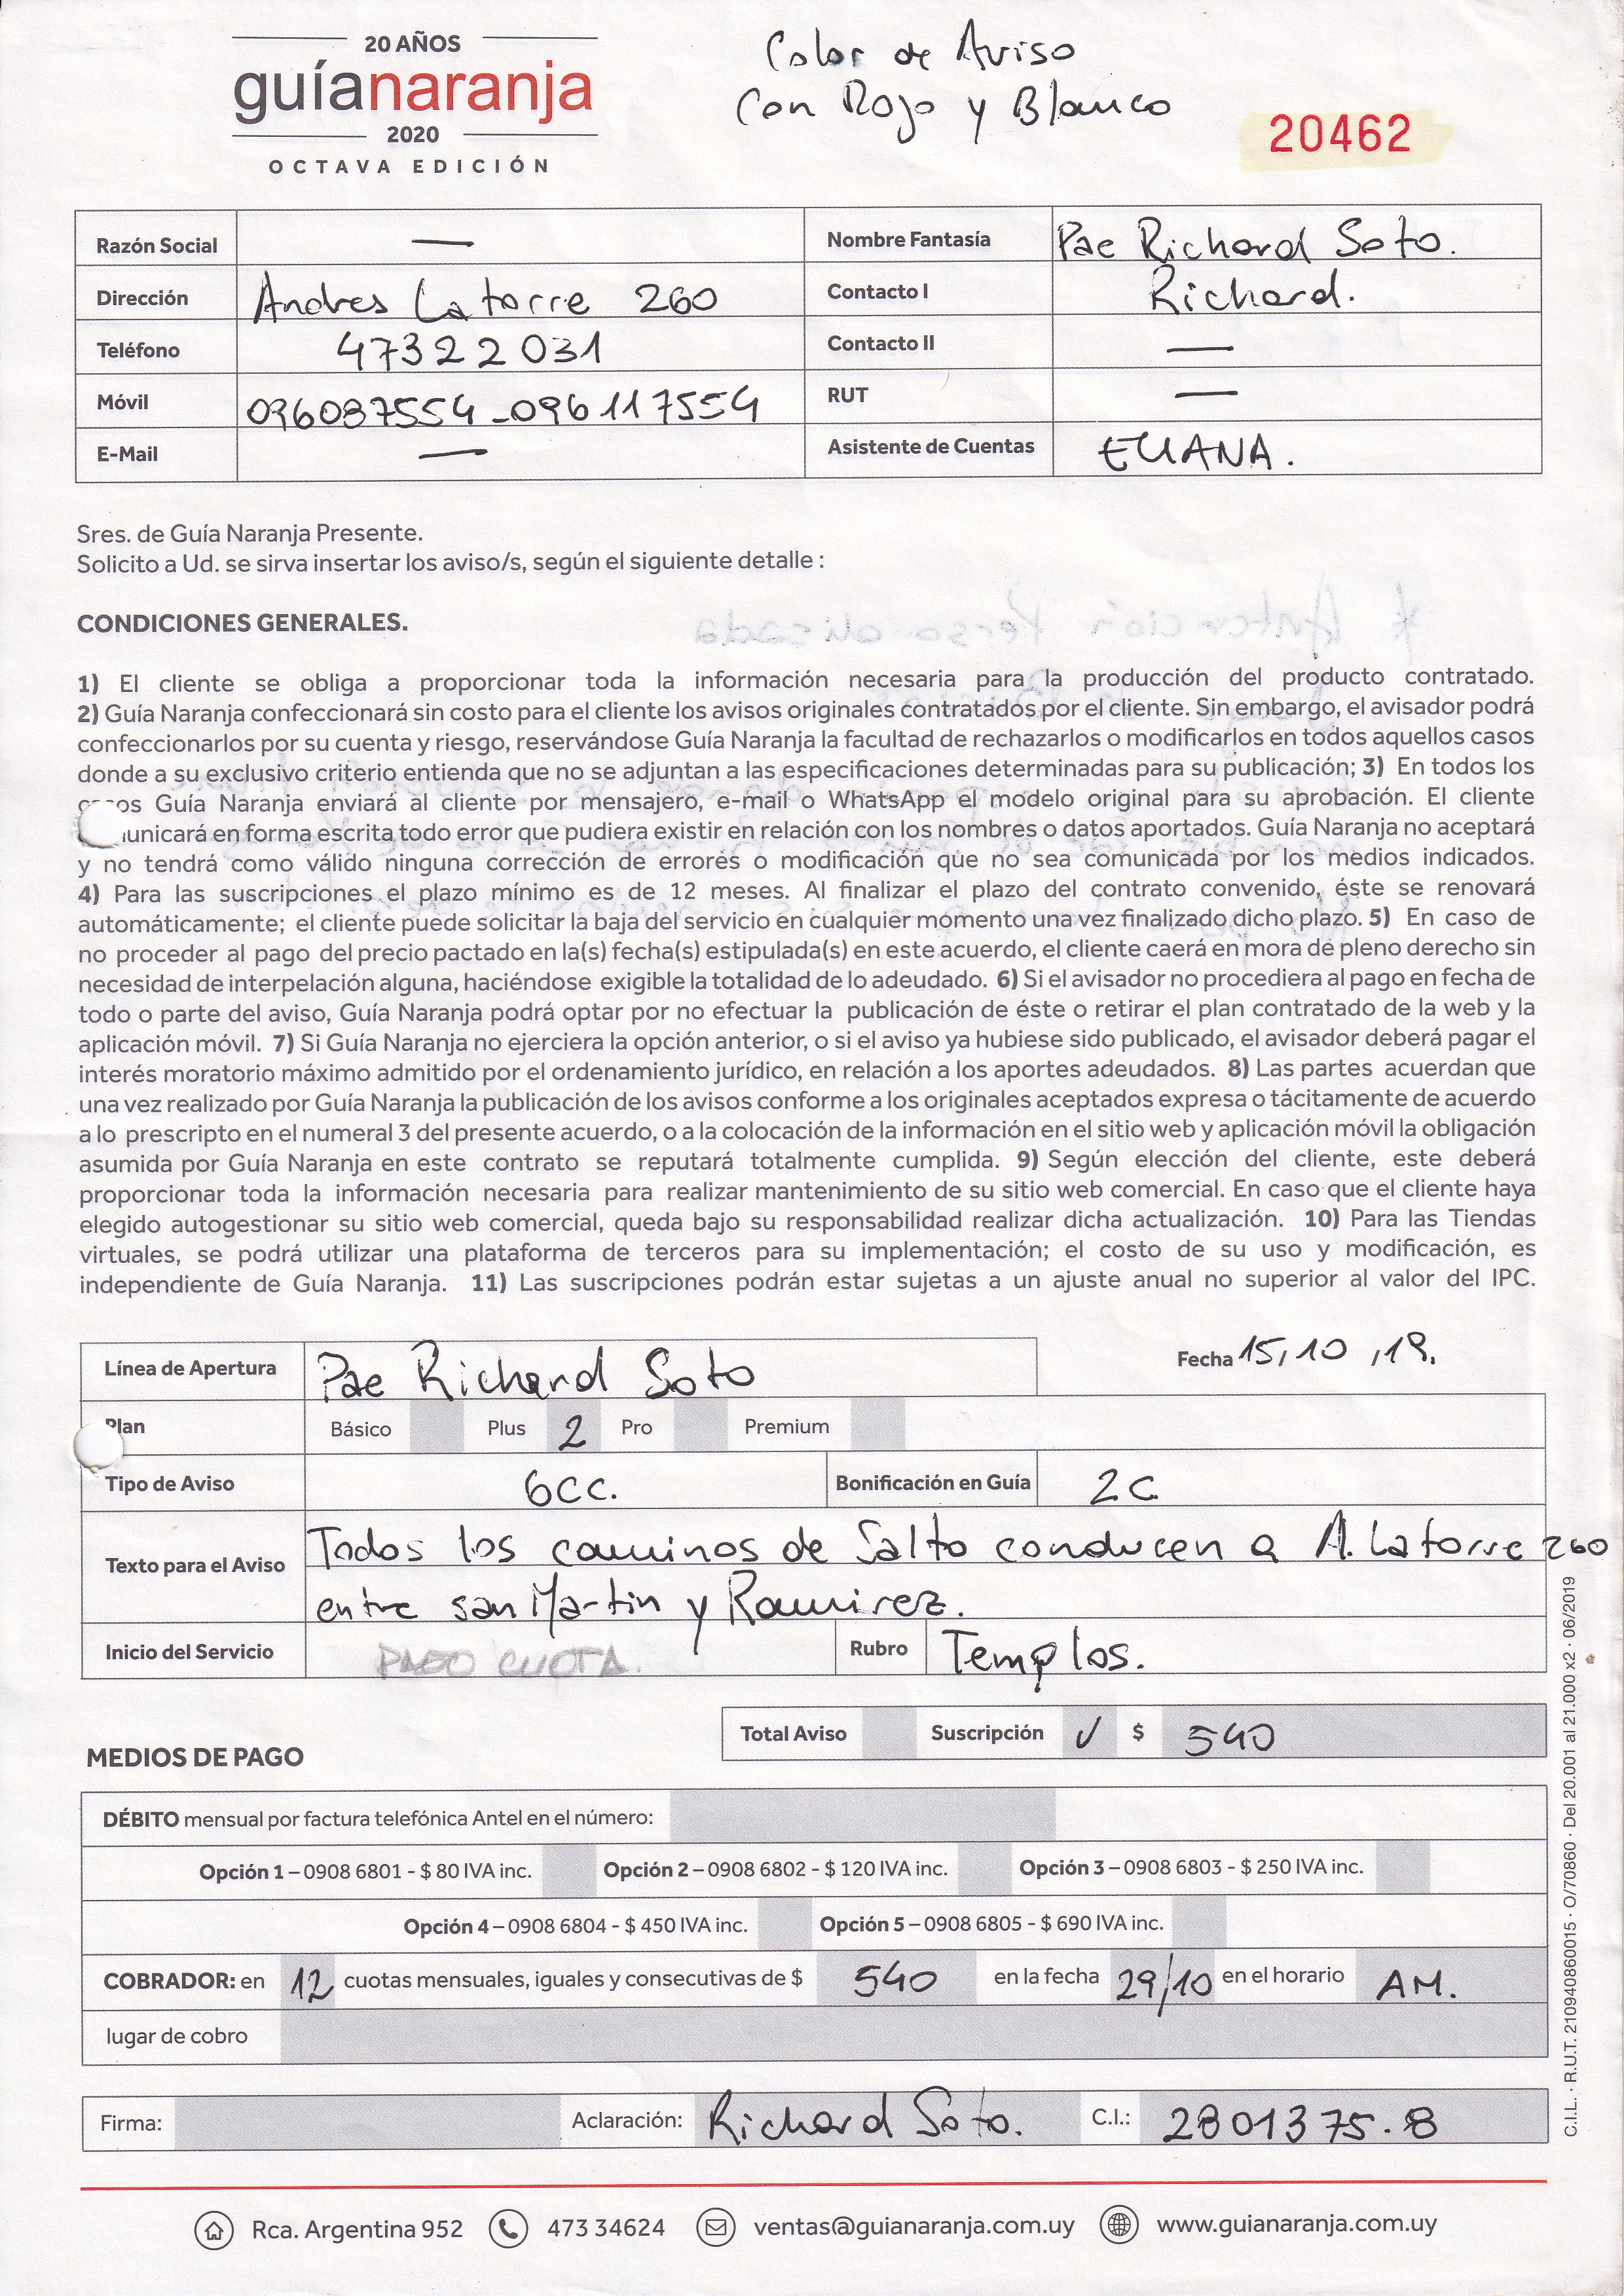 20 AÑOS
guíanaranja
2020
OCTAVA EDICIÓN
Color de Aviso
Con Rojo y Blanco
20462
Razón Social — Nombre Fantasía Pae Richard Soto.
Dirección Andres Latorre 260 Contacto I Richard.
Teléfono 47322031 Contacto II —
Móvil 096087554 - 096117554 RUT —
E-Mail — Asistente de Cuentas ELIANA.
Sres. de Guía Naranja Presente.
Solicito a Ud. se sirva insertar los aviso/s, según el siguiente detalle :
CONDICIONES GENERALES.
1) El cliente se obliga a proporcionar toda la información necesaria para la producción del producto contratado.
2) Guía Naranja confeccionará sin costo para el cliente los avisos originales contratados por el cliente. Sin embargo, el avisador podrá
confeccionarlos por su cuenta y riesgo, reservándose Guía Naranja la facultad de rechazarlos o modificarlos en todos aquellos casos
donde a su exclusivo criterio entienda que no se adjuntan a las especificaciones determinadas para su publicación; 3) En todos los
casos Guía Naranja enviará al cliente por mensajero, e-mail o WhatsApp el modelo original para su aprobación. El cliente
unicará en forma escrita todo error que pudiera existir en relación con los nombres o datos aportados. Guía Naranja no aceptará
y no tendrá como válido ninguna corrección de errores o modificación que no sea comunicada por los medios indicados.
4) Para las suscripciones el plazo mínimo es de 12 meses. Al finalizar el plazo del contrato convenido, éste se renovará
automáticamente; el cliente puede solicitar la baja del servicio en cualquier momento una vez finalizado dicho plazo. 5) En caso de
no proceder al pago del precio pactado en la(s) fecha(s) estipulada(s) en este acuerdo, el cliente caerá en mora de pleno derecho sin
necesidad de interpelación alguna, haciéndose exigible la totalidad de lo adeudado. 6) Si el avisador no procediera al pago en fecha de
todo o parte del aviso, Guía Naranja podrá optar por no efectuar la publicación de éste o retirar el plan contratado de la web y la
aplicación móvil. 7) Si Guía Naranja no ejerciera la opción anterior, o si el aviso ya hubiese sido publicado, el avisador deberá pagar el
interés moratorio máximo admitido por el ordenamiento jurídico, en relación a los aportes adeudados. 8) Las partes acuerdan que
una vez realizado por Guía Naranja la publicación de los avisos conforme a los originales aceptados expresa o tácitamente de acuerdo
a lo prescripto en el numeral 3 del presente acuerdo, o a la colocación de la información en el sitio web y aplicación móvil la obligación
asumida por Guía Naranja en este contrato se reputará totalmente cumplida. 9) Según elección del cliente, este deberá
proporcionar toda la información necesaria para realizar mantenimiento de su sitio web comercial. En caso que el cliente haya
elegido autogestionar su sitio web comercial, queda bajo su responsabilidad realizar dicha actualización. 10) Para las Tiendas
virtuales, se podrá utilizar una plataforma de terceros para su implementación; el costo de su uso y modificación, es
independiente de Guía Naranja. 11) Las suscripciones podrán estar sujetas a un ajuste anual no superior al valor del IPC.
Línea de Apertura Pae Richard Soto Fecha 15, 10 ,19.
Plan Básico Plus 2 Pro Premium
Tipo de Aviso 6CC. Bonificación en Guía 2C
Texto para el Aviso Todos los caminos de Salto conducen a A. Latorre 260
entre san Martin y Ramirez.
Inicio del Servicio PAGO CUOTA. Rubro Templos.
Total Aviso Suscripción ✓ $ 540
MEDIOS DE PAGO
DÉBITO mensual por factura telefónica Antel en el número:
Opción 1 – 0908 6801 - $ 80 IVA inc. Opción 2 – 0908 6802 - $ 120 IVA inc. Opción 3 – 0908 6803 - $ 250 IVA inc.
Opción 4 – 0908 6804 - $ 450 IVA inc. Opción 5 – 0908 6805 - $ 690 IVA inc.
COBRADOR: en 12 cuotas mensuales, iguales y consecutivas de $ 540 en la fecha 29/10 en el horario AM.
lugar de cobro
Firma: Aclaración: Richard Soto. C.I.: 2801375.8
C.I.L. · R.U.T. 210940860015 · O/70860 · Del 20.001 al 21.000 x2 · 06/2019
Rca. Argentina 952 473 34624 ventas@guianaranja.com.uy www.guianaranja.com.uy